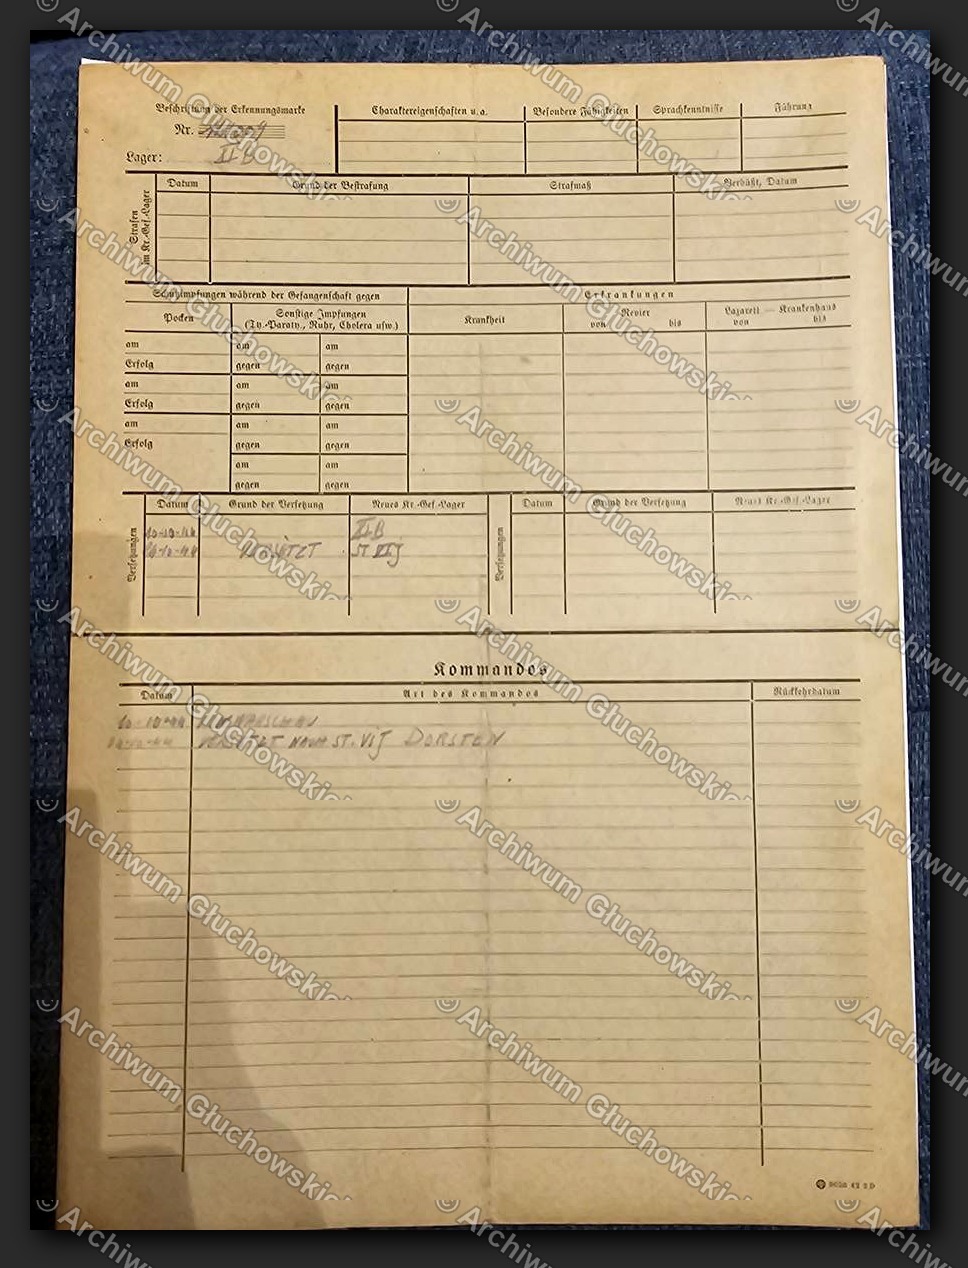 Beschriftung der Erkennungsmarke
Nr.
Lager: II-B
Charaktereigenschaften u.a. Besondere Fähigkeiten Sprachkenntnisse Führung
Strafen im Kr.-Gef.-Lager
Datum Grund der Bestrafung Strafmaß Verbüßt, Datum
Schutzimpfungen während der Gefangenschaft gegen Erkrankungen
Pocken Sonstige Impfungen
(Ty.-Paraty., Ruhr, Cholera usw.)
Krankheit Revier Lazarett — Krankenhaus
von bis von bis
am am am
Erfolg gegen gegen
am am am
Erfolg gegen gegen
am am am
Erfolg gegen gegen
am am
gegen gegen
Versetzungen
Datum Grund der Versetzung Neues Kr.-Gef.-Lager
10-10-44 II-B
VERSETZT ST VI J
Versetzungen
Datum Grund der Versetzung Neues Kr.-Gef.-Lager
Kommandos
Datum Art des Kommandos Rückkehrdatum
10-10-44
VERSETZT NACH ST. VI J DORSTEN
© Archiwum Głuchowskich